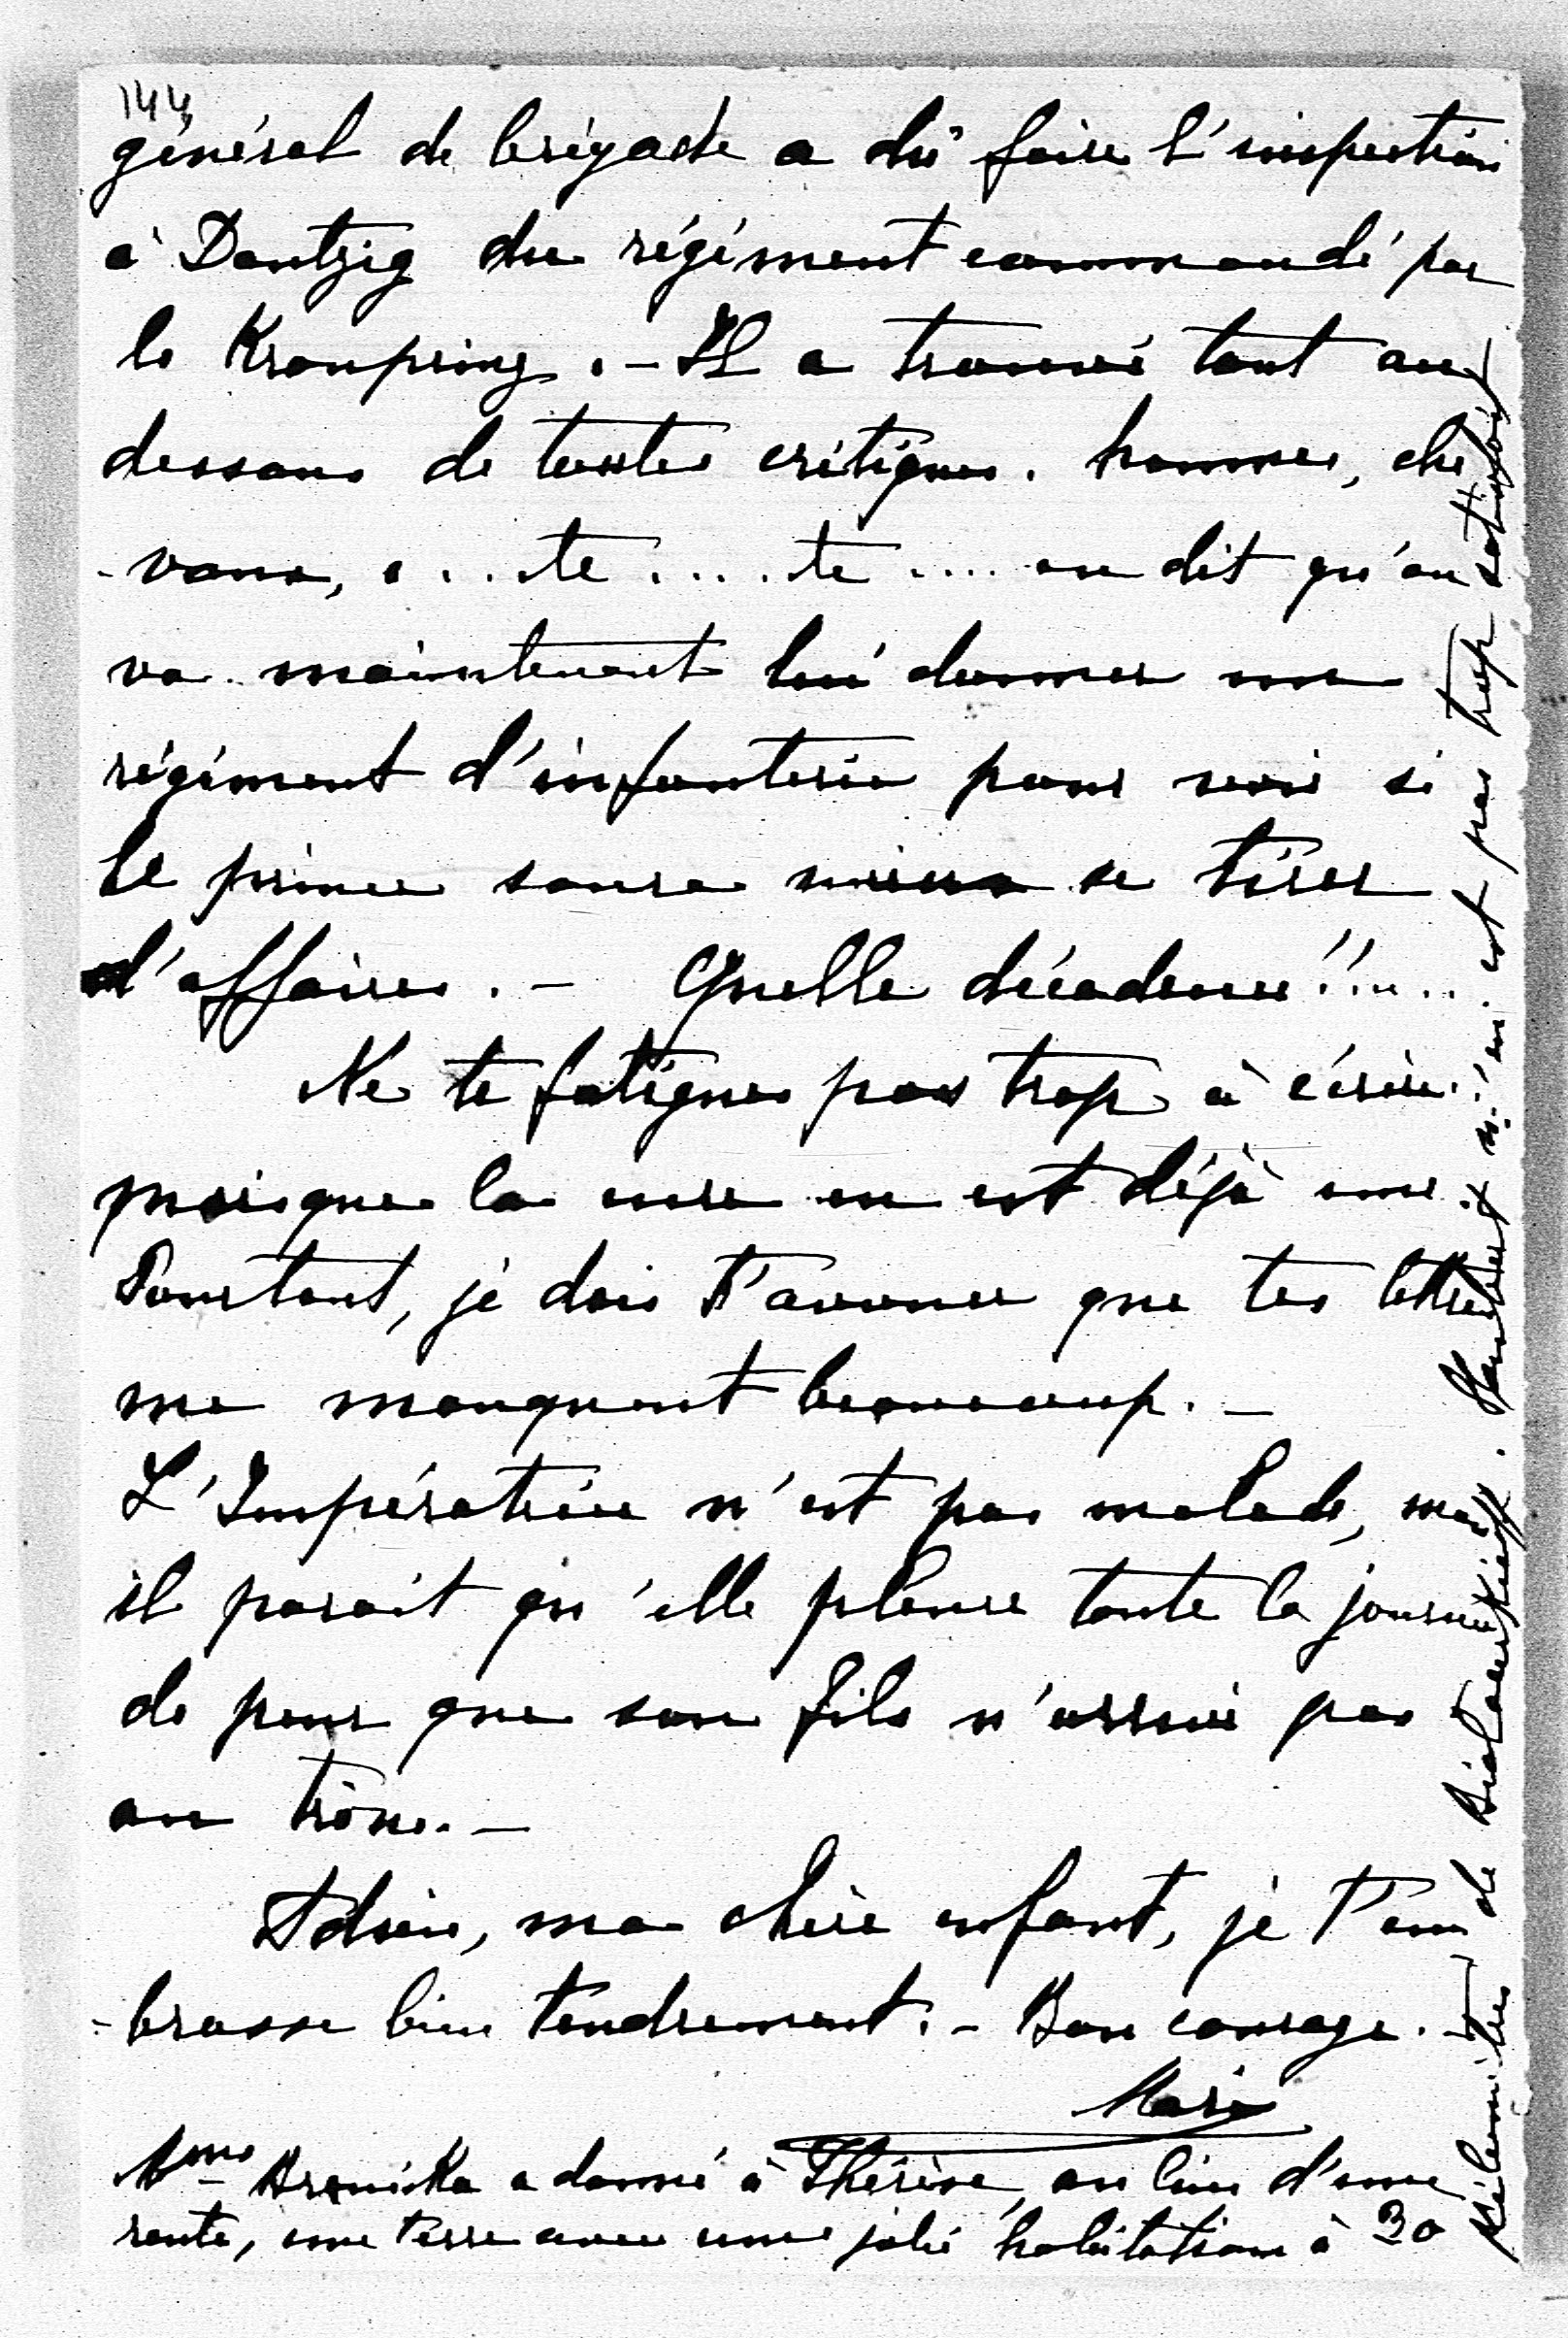 144
général de brigade a dû faire l'inspection
à Dantzig du régiment commandé par
le Kronprinz. - Il a trouvé tout au
dessous de toutes critiques. hommes, che
-vaux, e...te ....te .... on dit qu'on
va maintenant lui donner un
régiment d'infanterie pour voir si
le prince saura mieux se tirer
d'affaires. - Quelle décadence!!...
Ne te fatigues pas trop à écrire.
puisque la cure en est déjà une.
Pourtant, je dois t'avouer que tes lettres
me manquent beaucoup. -
L'Impératrice n'est pas malade, mais
il parait qu'elle pleure toute la journée
de peur que son fils n'arrive pas
au trône. -
Adieu, ma chère enfant, je t'em
-brasse bien tendrement. - Bon courage. -
Marie
Mme Bronicka a donné à Thérèse, au lieu d'une
rente, une terre avec une jolie habitation à 30
kilomètres de Bialocerkieff. Humbert n'en est pas trop satisfait